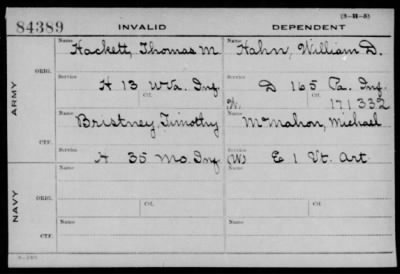 (3-H-5)
84389 INVALID DEPENDENT
Name Hackett, Thomas M Name Hahn, William D.
ARMY
ORIG.
Service H 13 W Va. Inf. Service D 165 Pa. Inf.
Ctf. W. Ctf. 171332
Name Bristney, Timothy Name McMahon, Michael
CTF.
Service A 35 Mo. Inf Service (W) E 1 Vt. Art
NAVY
ORIG.
Name Name
Ctf. Ctf.
CTF.
Name Name